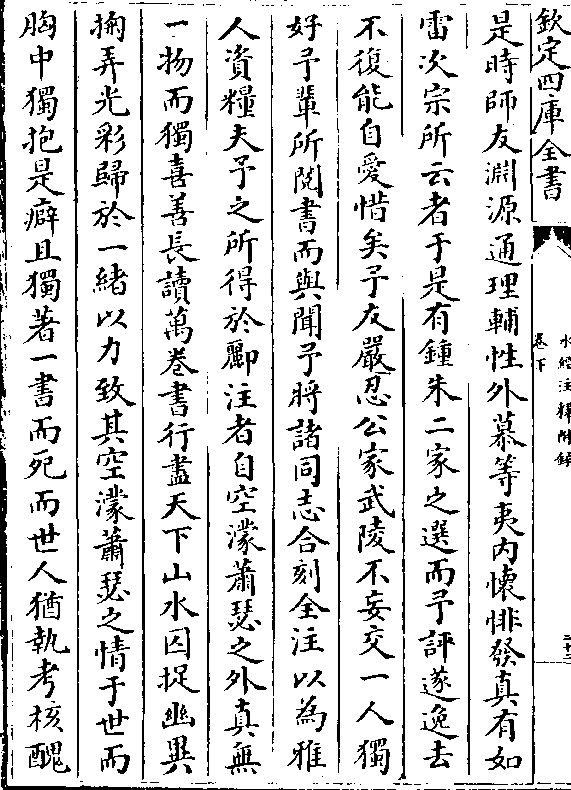 欽定四庫全書
水經注釋附錄
卷下
二十二
是時師友淵源通理輔性外慕等夷内懷悱發真有如
雷次宗所云者于是有鍾朱二家之選而予評遂逸去
不復能自愛惜矣予友嚴忍公家武陵不妄交一人獨
好予軰所閲書而與聞予將諸同志合刻全注以為雅
人資糧夫予之所得於酈注者自空濛蕭瑟之外真無
一物而獨喜善長讀萬卷書行盡天下山水囚捉幽異
掬弄光彩歸於一緒以力致其空濛蕭瑟之情于世而
胸中獨抱是癖且獨著一書而死而世人猶執考核醜